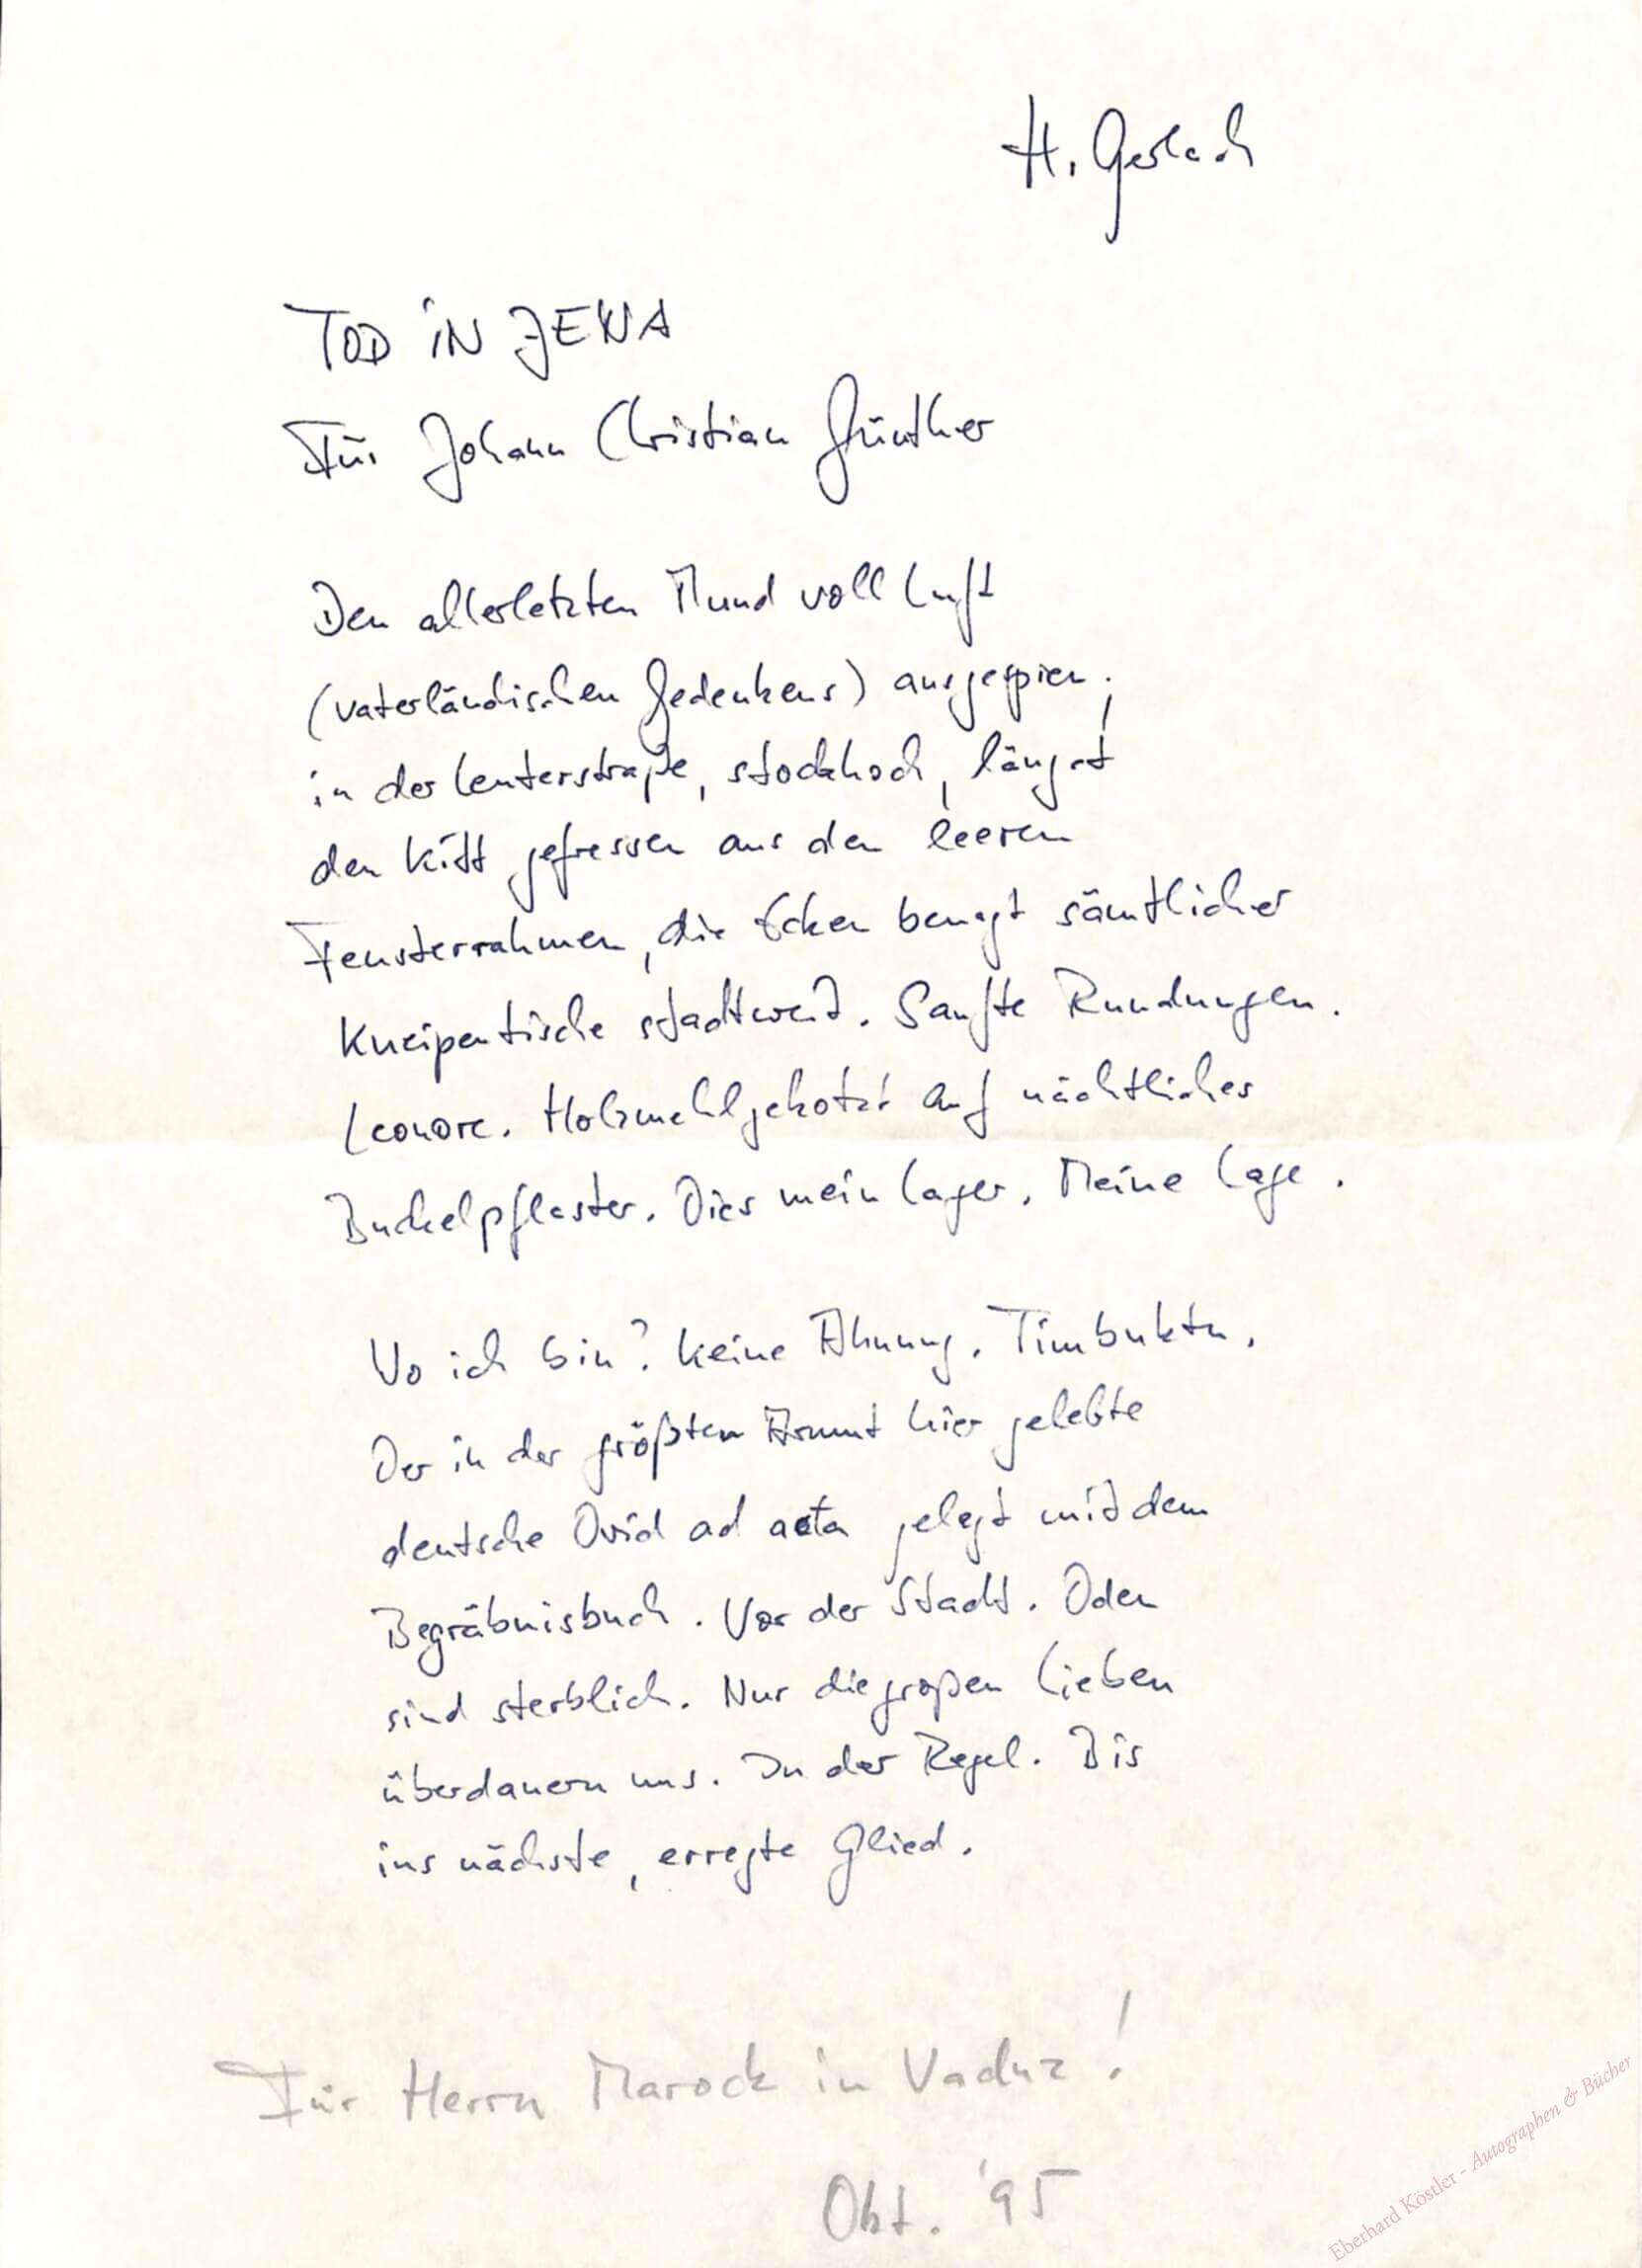 H. Gerlach
TOD IN JENA
Für Johann Christian Günther
Den allerletzten Mund voll Luft
(vaterländischen Gedenkens) ausgespien;
in der Leuterstraße, stockhoch, längst
den Kitt gefressen aus den leeren
Fensterrahmen, die Ecken benagt sämtlicher
Kneipentische stadtweit. Sanfte Rundungen.
Leonore. Holzmehlgekotzt auf nächtliches
Buckelpflaster. Dies mein Lager. Meine Lage.
Wo ich bin? Keine Ahnung. Timbuktu.
Der in der größten Armut hier gelebte
deutsche Ovid ad acta gelegt mit dem
Begräbnisbuch. Vor der Stadt. Oden
sind sterblich. Nur die großen Lieben
überdauern uns. In der Regel. Bis
ins nächste, erregte Glied.
Für Herrn Marock in Vaduz!
Okt. '95
Eberhard Köstler - Autographen & Bücher